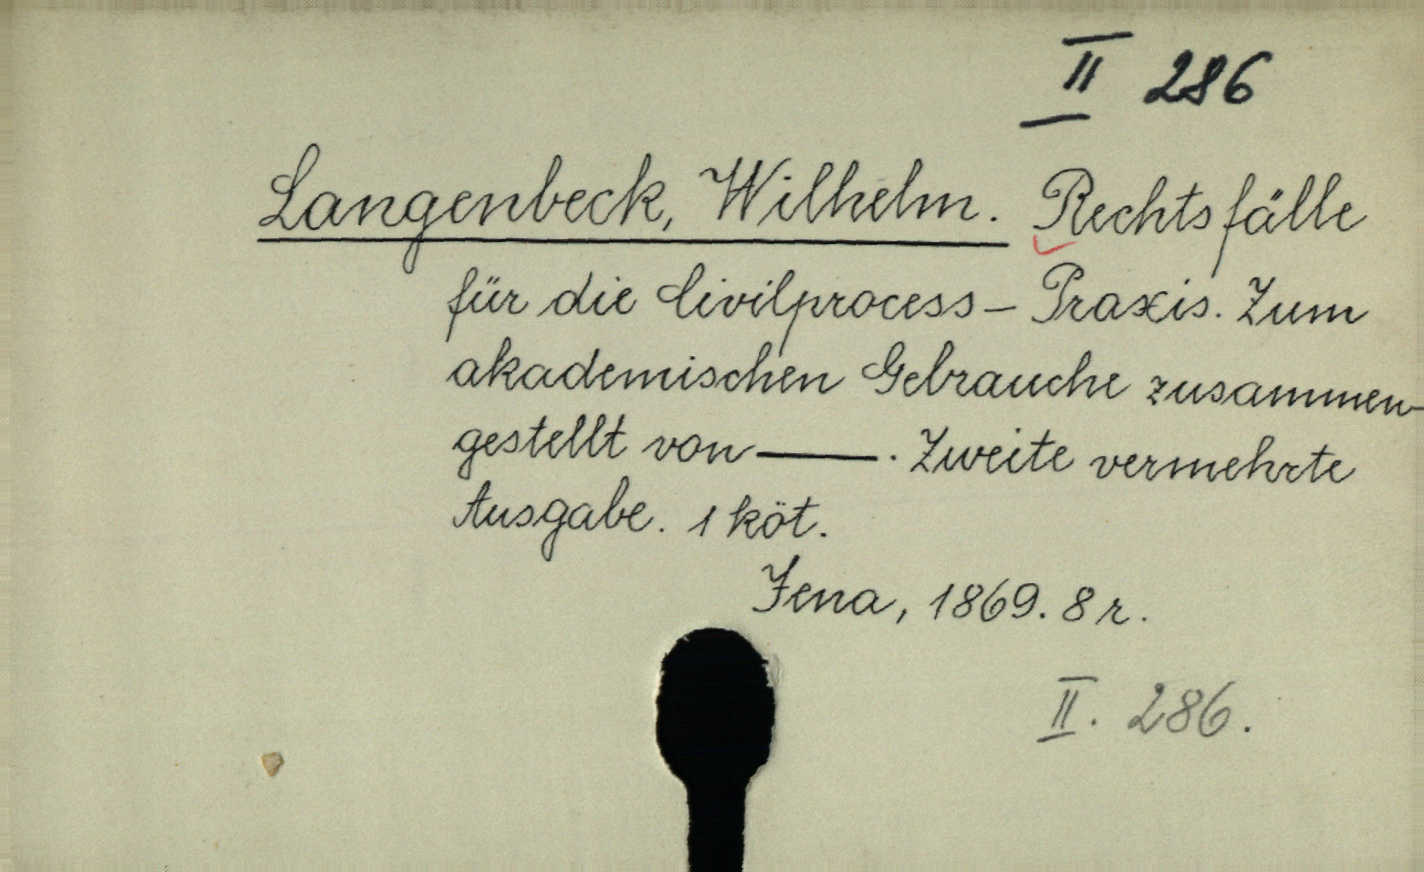 II 286
Langenbeck, Wilhelm. Rechtsfälle
für die Civilprocess - Praxis. Zum
akademischen Gebrauche zusammen-
gestellt von ——. Zweite vermehrte
Ausgabe. 1 köt.
Jena, 1869. 8 r.
II. 286.